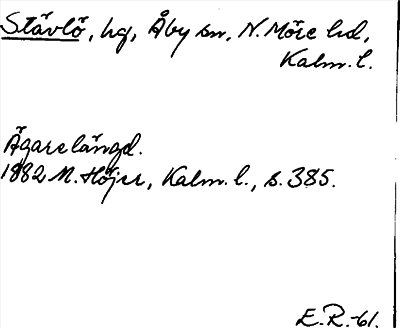 Stävlö, hg, Åby sn, N. Möre hd,
Kalm. l.
Ägarelängd.
1882 M. Höjer, Kalm. l., s. 385.
E.R.-61.